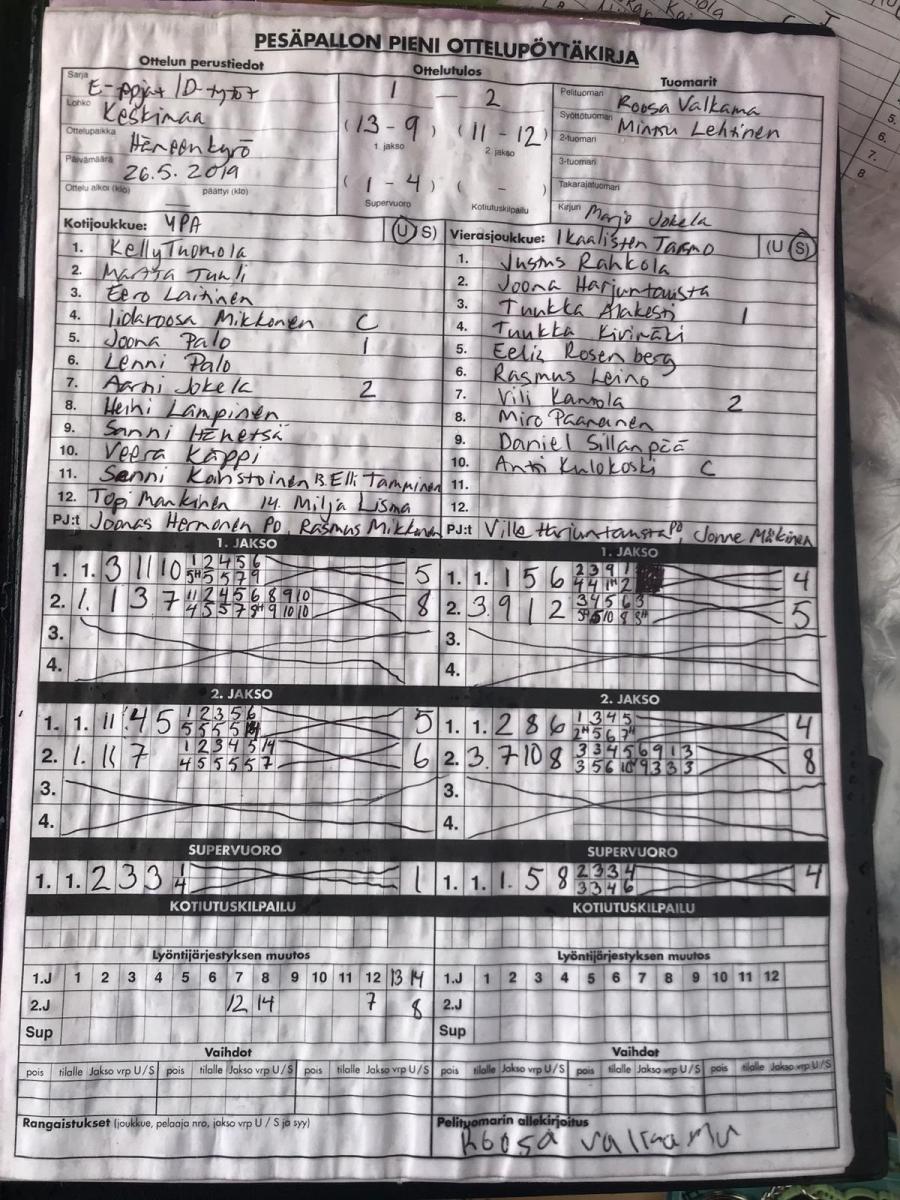 PESÄPALLON PIENI OTTELUPÖYTÄKIRJA
Ottelun perustiedot
Sarja E-pojat /D-tytöt
Lohko Keskimaa
Ottelupaikka Hämeenkyrö
Päivämäärä 26.5.2019
Ottelu alkoi (klo) päättyi (klo)
Ottelutulos
1 - 2
(13-9) (11-12)
1. jakso 2. jakso
(1-4) ( - )
Supervuoro Kotiutuskilpailu
Tuomarit
Pelituomari Roosa Valkama
Syöttötuomari Minttu Lehtinen
2-tuomari
3-tuomari
Takarajatuomari
Kirjuri Marjo Jokela
Kotijoukkue: YPA (U S)
1. Kelly Tuomola
2. Martta Tuuli
3. Eero Laitinen
4. Iidaroosa Mikkonen C
5. Joona Palo 1
6. Lenni Palo
7. Aarni Jokela 2
8. Heini Lampinen
9. Sanni
10. Veera Käppi
11. Senni 13. Elli Tamminen
12. Topi 14. Milja
PJ:t Joonas Hermonen PO, Rasmus Mikkonen
Vierasjoukkue: Ikaalisten Tarmo (U S)
1. Justus Rahkola
2. Joona Harjuntausta
3. Tuukka Alakesti 1
4. Tuukka Kivimäki
5. Eelis Rosenberg
6. Rasmus Leino
7. Vili Kannola 2
8. Miro Paananen
9. Daniel Sillanpää
10. Antti Kulokoski C
11.
12.
PJ:t Ville Harjuntausta PO, Jonne Mäkinen
1. JAKSO
1. 1. 3 11 10 1 2 4 5 6 5
5H 5 5 7 9
2. 1. 1 3 7 11 2 4 5 6 8 9 10 8
4 5 5 7 8H 9 10 10
3.
4.
1. JAKSO
1. 1. 1 5 6 2 3 9 1 4
4 4 1H 2
2. 3. 9 1 2 3 4 5 6 3 5
3.
4.
2. JAKSO
1. 1. 11 4 5 1 2 3 5 6 5
5 5 5 5
2. 1. 11 7 1 2 3 4 5 14 6
4 5 5 5 5 7
3.
4.
2. JAKSO
1. 1. 2 8 6 1 3 4 5 4
2H 5 6 7H
2. 3. 7 10 8 3 3 4 5 6 9 1 3 8
3 5 6 10H 9 3 3 3
3.
4.
SUPERVUORO
1. 1. 2 3 3 1 1
4
SUPERVUORO
1. 1. 1. 5 8 2 3 3 4 4
3 3 4 6
KOTIUTUSKILPAILU
KOTIUTUSKILPAILU
Lyöntijärjestyksen muutos
1.J 1 2 3 4 5 6 7 8 9 10 11 12 13 14
2.J 12 14 7 8
Sup
Lyöntijärjestyksen muutos
1.J 1 2 3 4 5 6 7 8 9 10 11 12
2.J
Sup
Vaihdot
pois tilalle Jakso vrp U/S pois tilalle Jakso vrp U/S pois tilalle Jakso vrp U/S
Vaihdot
pois tilalle Jakso vrp U/S pois tilalle Jakso vrp U/S pois tilalle Jakso vrp U/S
Rangaistukset (joukkue, pelaaja nro, jakso vrp U / S ja syy)
Pelituomarin allekirjoitus
Roosa Valkama